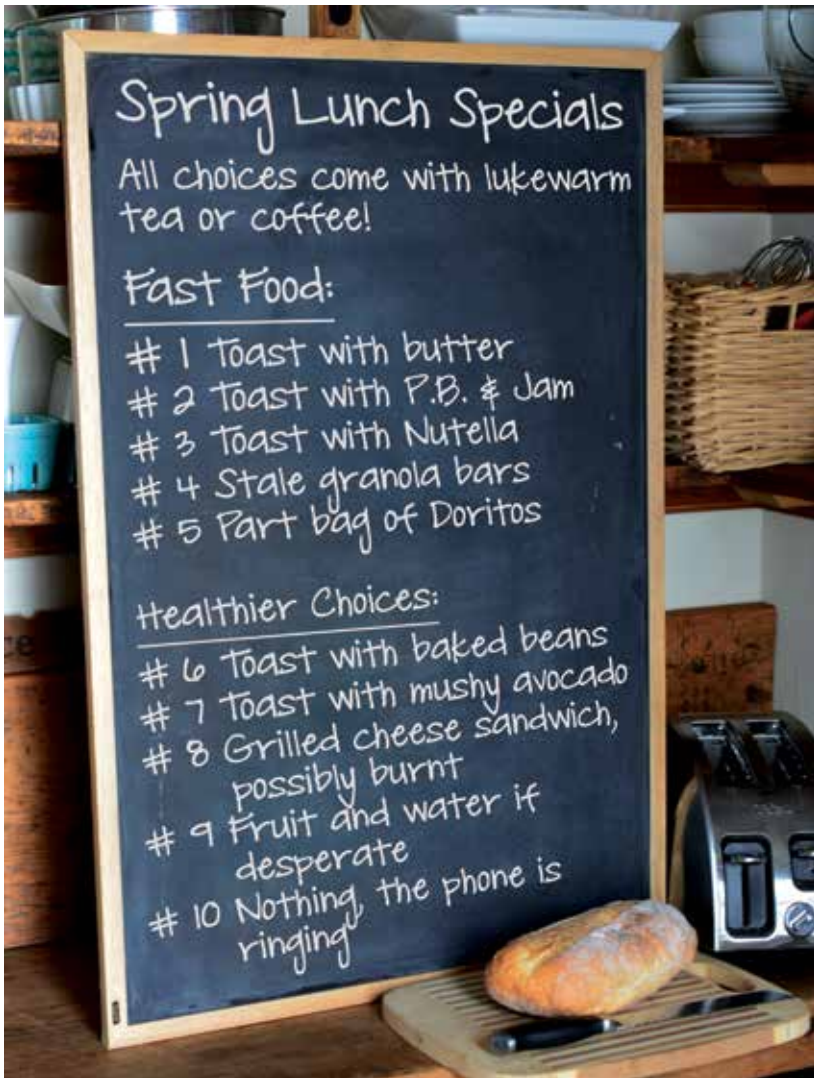 Spring Lunch Specials
All choices come with lukewarm
tea or coffee!
Fast Food:
# 1 Toast with butter
# 2 Toast with P.B. & Jam
# 3 Toast with Nutella
# 4 Stale granola bars
# 5 Part bag of Doritos
Healthier Choices:
# 6 Toast with baked beans
# 7 Toast with mushy avocado
# 8 Grilled cheese sandwich,
possibly burnt
# 9 Fruit and water if
desperate
# 10 Nothing, the phone is
ringing